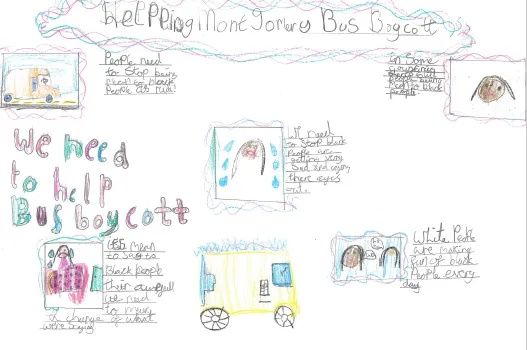 Helpping Montgomery Bus Boycott
People need
to Stop being
mean to black
People its rude!
in Some
People
to black
People
We need
to help
Bus boycott
We need
to Stop black
People are
getting very
Sad and crying
there eyes
oute
its mean
to Say to
Black people
that
We need
to
change of word
were saying
White People
are making
fun of black
People every
day